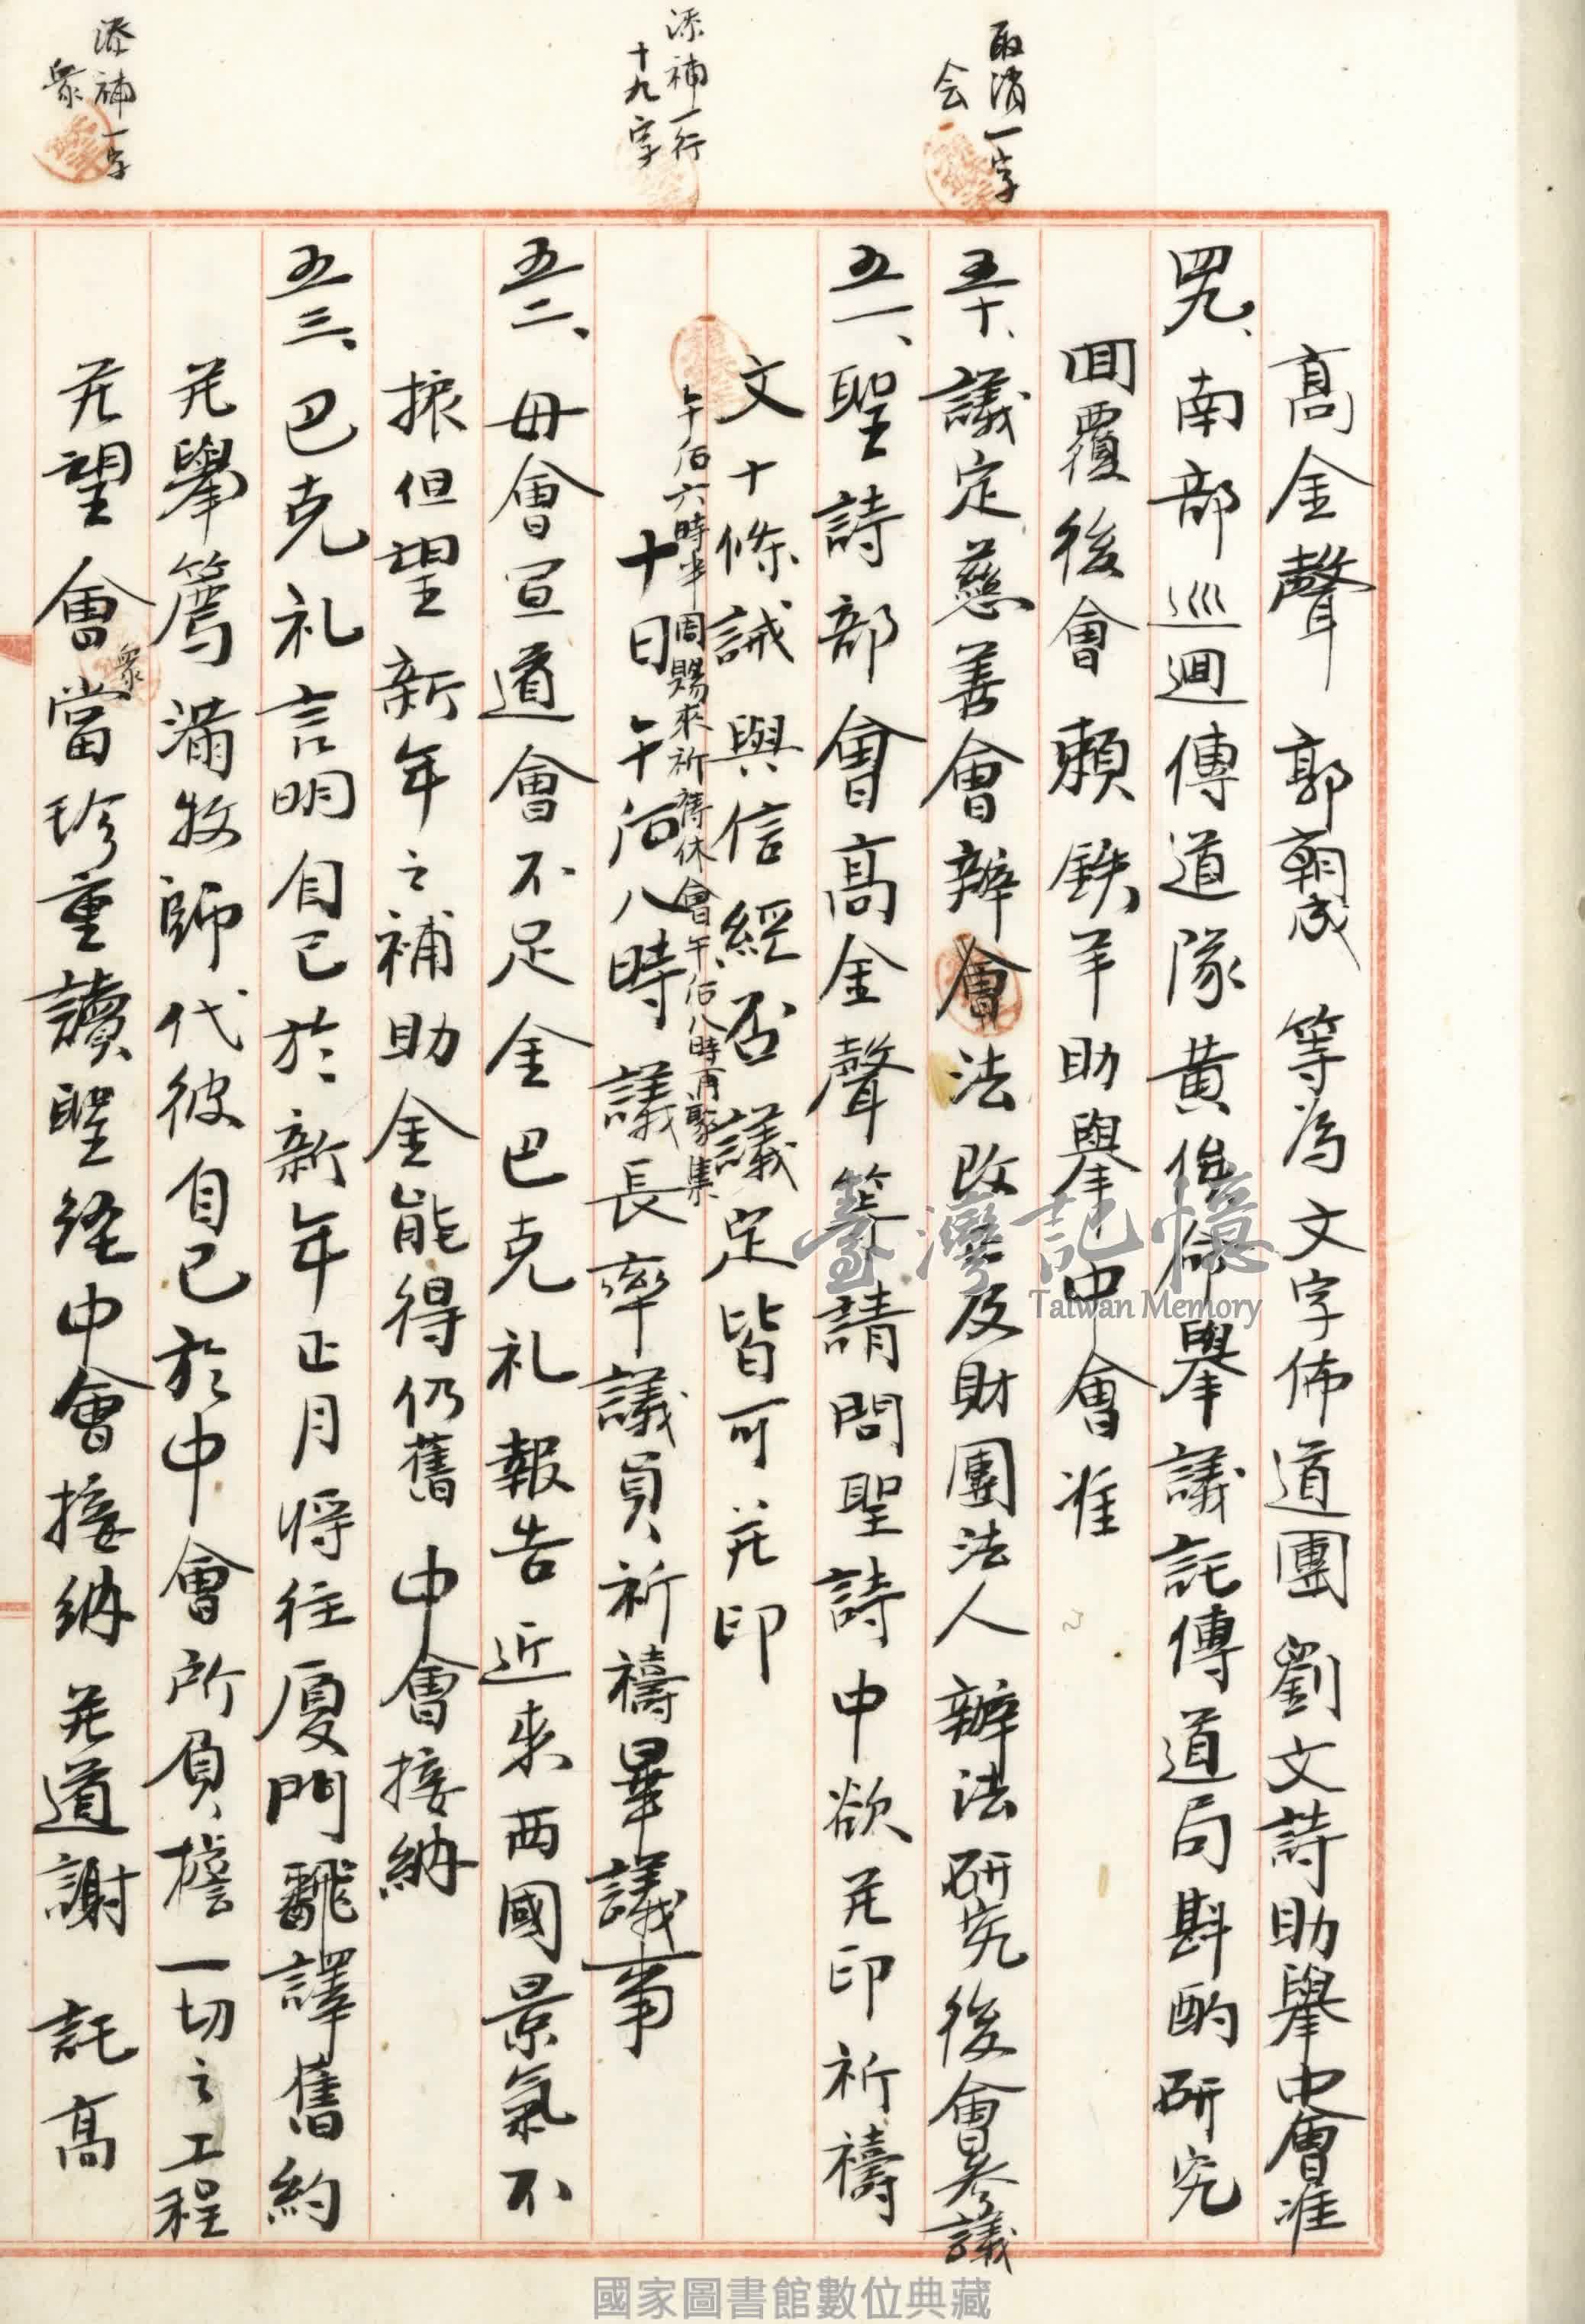 取消一字
会
添補一行
十九字
添補一字
眾
高金聲 郭朝成 等為文字佈道團 劉文詩助舉中會准
四九、南部巡迴傳道隊黄俟命舉議託傳道局斟酌研究
回覆後會 賴鉄羊助舉中會准
五十、議定慈善會辦會法改善及財團法人辦法研究後會參議
五一、聖詩部會高金聲等請問聖詩中欲並印祈禱
文十條誡與信經否議定皆可並印
午后六時半周賜來祈禱休會午后八時再聚集
十日午后八時議長率議員祈禱畢議事
五二、母會宣道會不足金巴克礼報告近來两國景氣不
振但望新年之補助金能得仍舊 中會接納
五三、巴克礼言明自己於新年正月将往厦門飜譯舊約
並舉薦滿牧師代彼自己於中會所負擔一切之工程
並望會眾當珍重讀聖经中會接納 並道謝 託高
臺灣記憶
Taiwan Memory
國家圖書館數位典藏